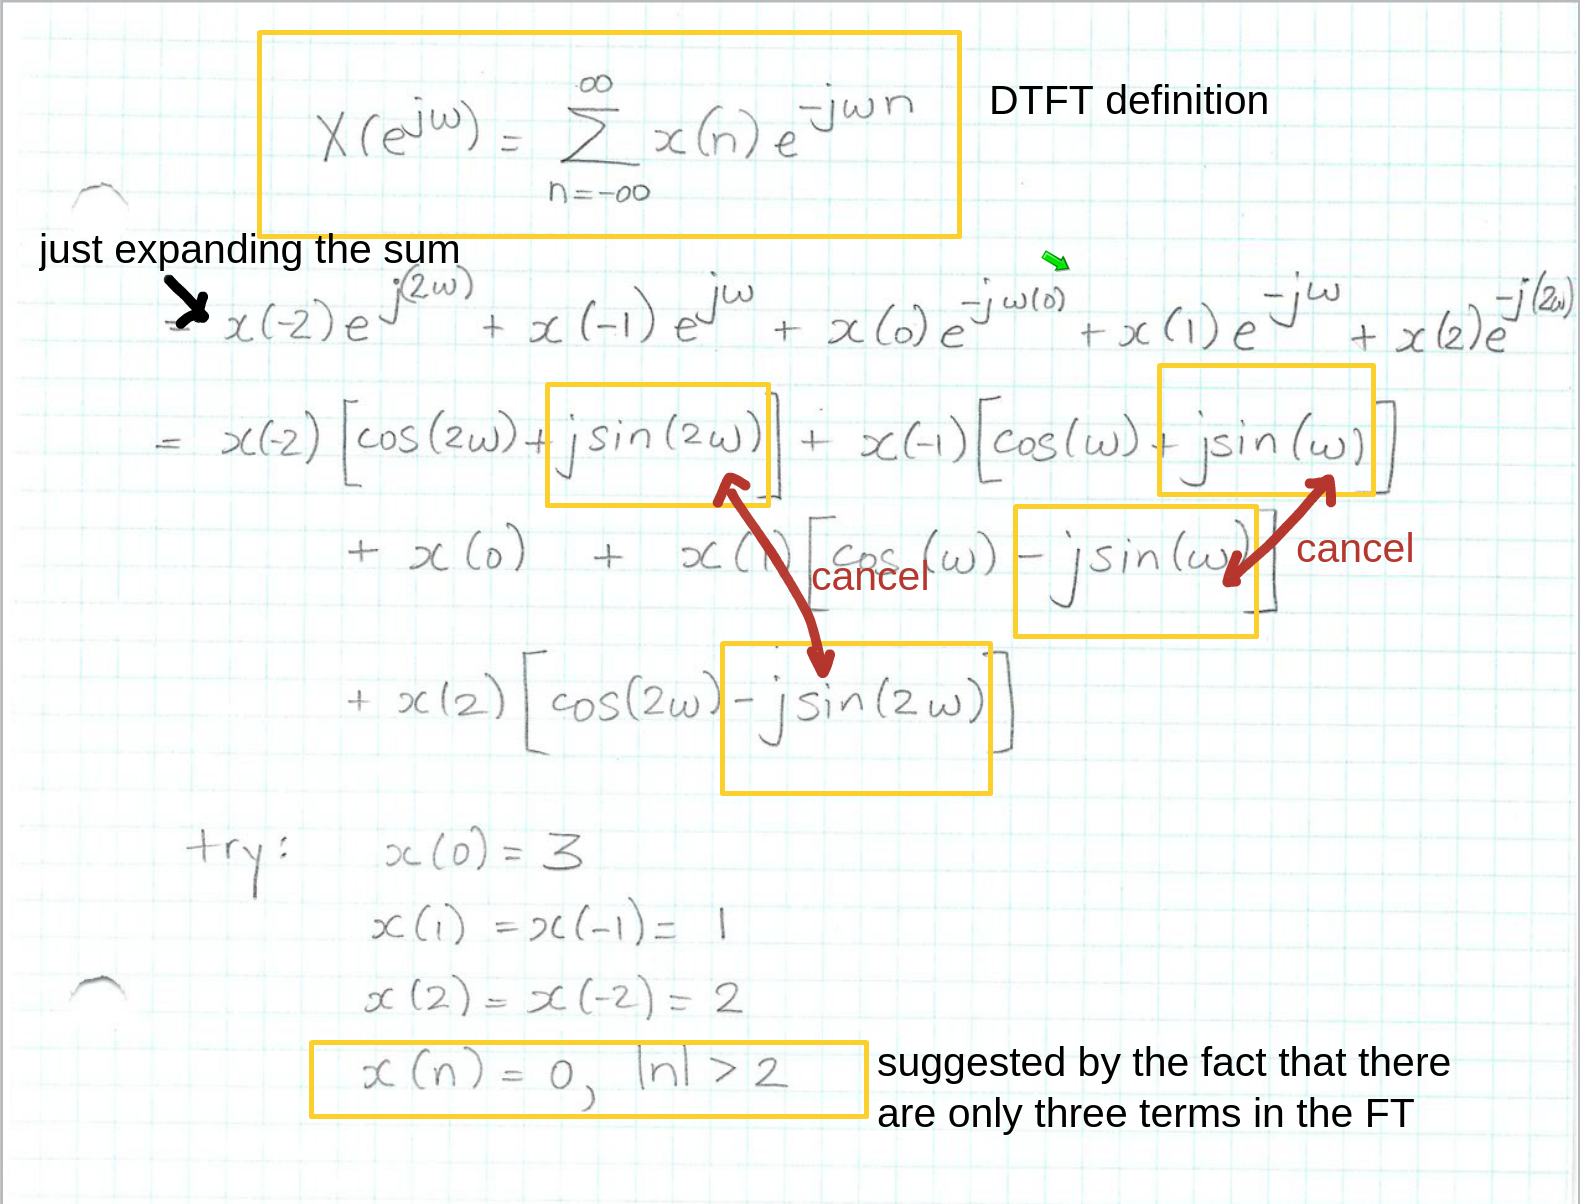 X(e^{jω}) = ∑_{n=-∞}^{∞} x(n) e^{-jωn}
DTFT definition
just expanding the sum
= x(-2) e^{j(2ω)} + x(-1) e^{jω} + x(0) e^{-jω(0)} + x(1) e^{-jω} + x(2) e^{-j(2ω)}
= x(-2) [cos(2ω) + j sin(2ω)] + x(-1) [cos(ω) + j sin(ω)]
+ x(0) + x(1) [cos(ω) - j sin(ω)]
cancel
cancel
+ x(2) [cos(2ω) - j sin(2ω)]
try: x(0) = 3
x(1) = x(-1) = 1
x(2) = x(-2) = 2
x(n) = 0, |n| > 2
suggested by the fact that there
are only three terms in the FT